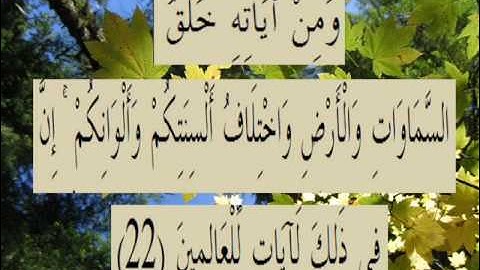 وَمِنْ آيَاتِهِ خَلْقُ
السَّمَاوَاتِ وَالْأَرْضِ وَاخْتِلَافُ أَلْسِنَتِكُمْ وَأَلْوَانِكُمْ ۚ إِنَّ
فِي ذَلِكَ لَآيَاتٍ لِّلْعَالِمِينَ (22)